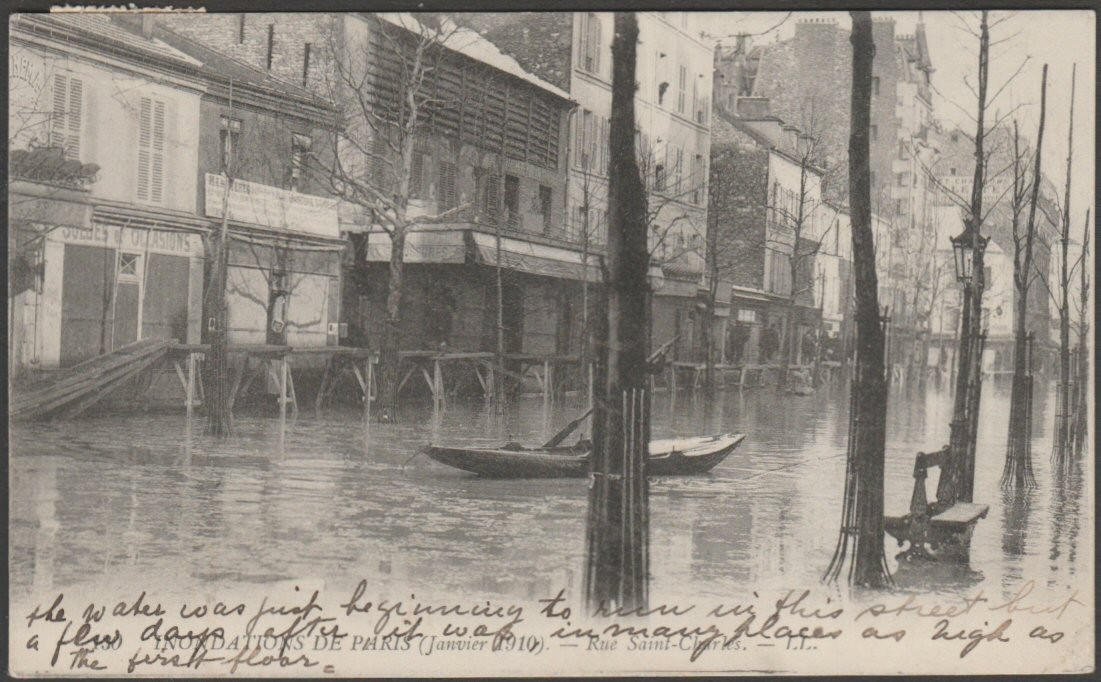 SOLDES & OCCASIONS
the water was just beginning to run in this street but
a few days after it was in many places as high as
the first floor.
INONDATIONS DE PARIS (Janvier 1910). — Rue Saint-Charles. — LL.